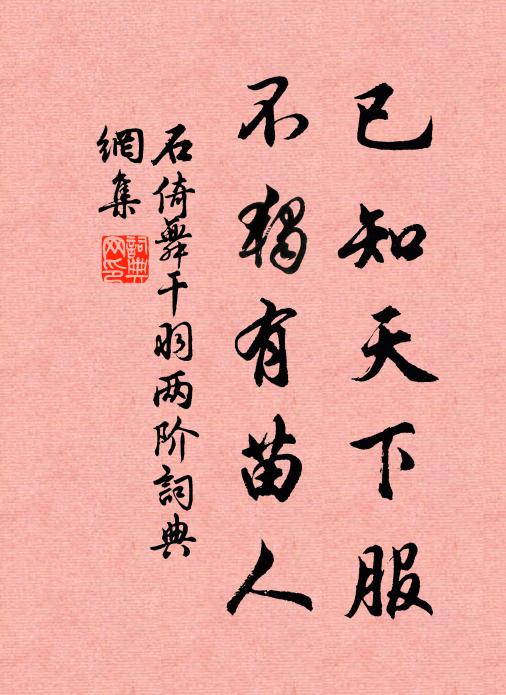 已知天下服
不独有苗人
石倚舞干羽两阶詞典
網集
詞典
网印